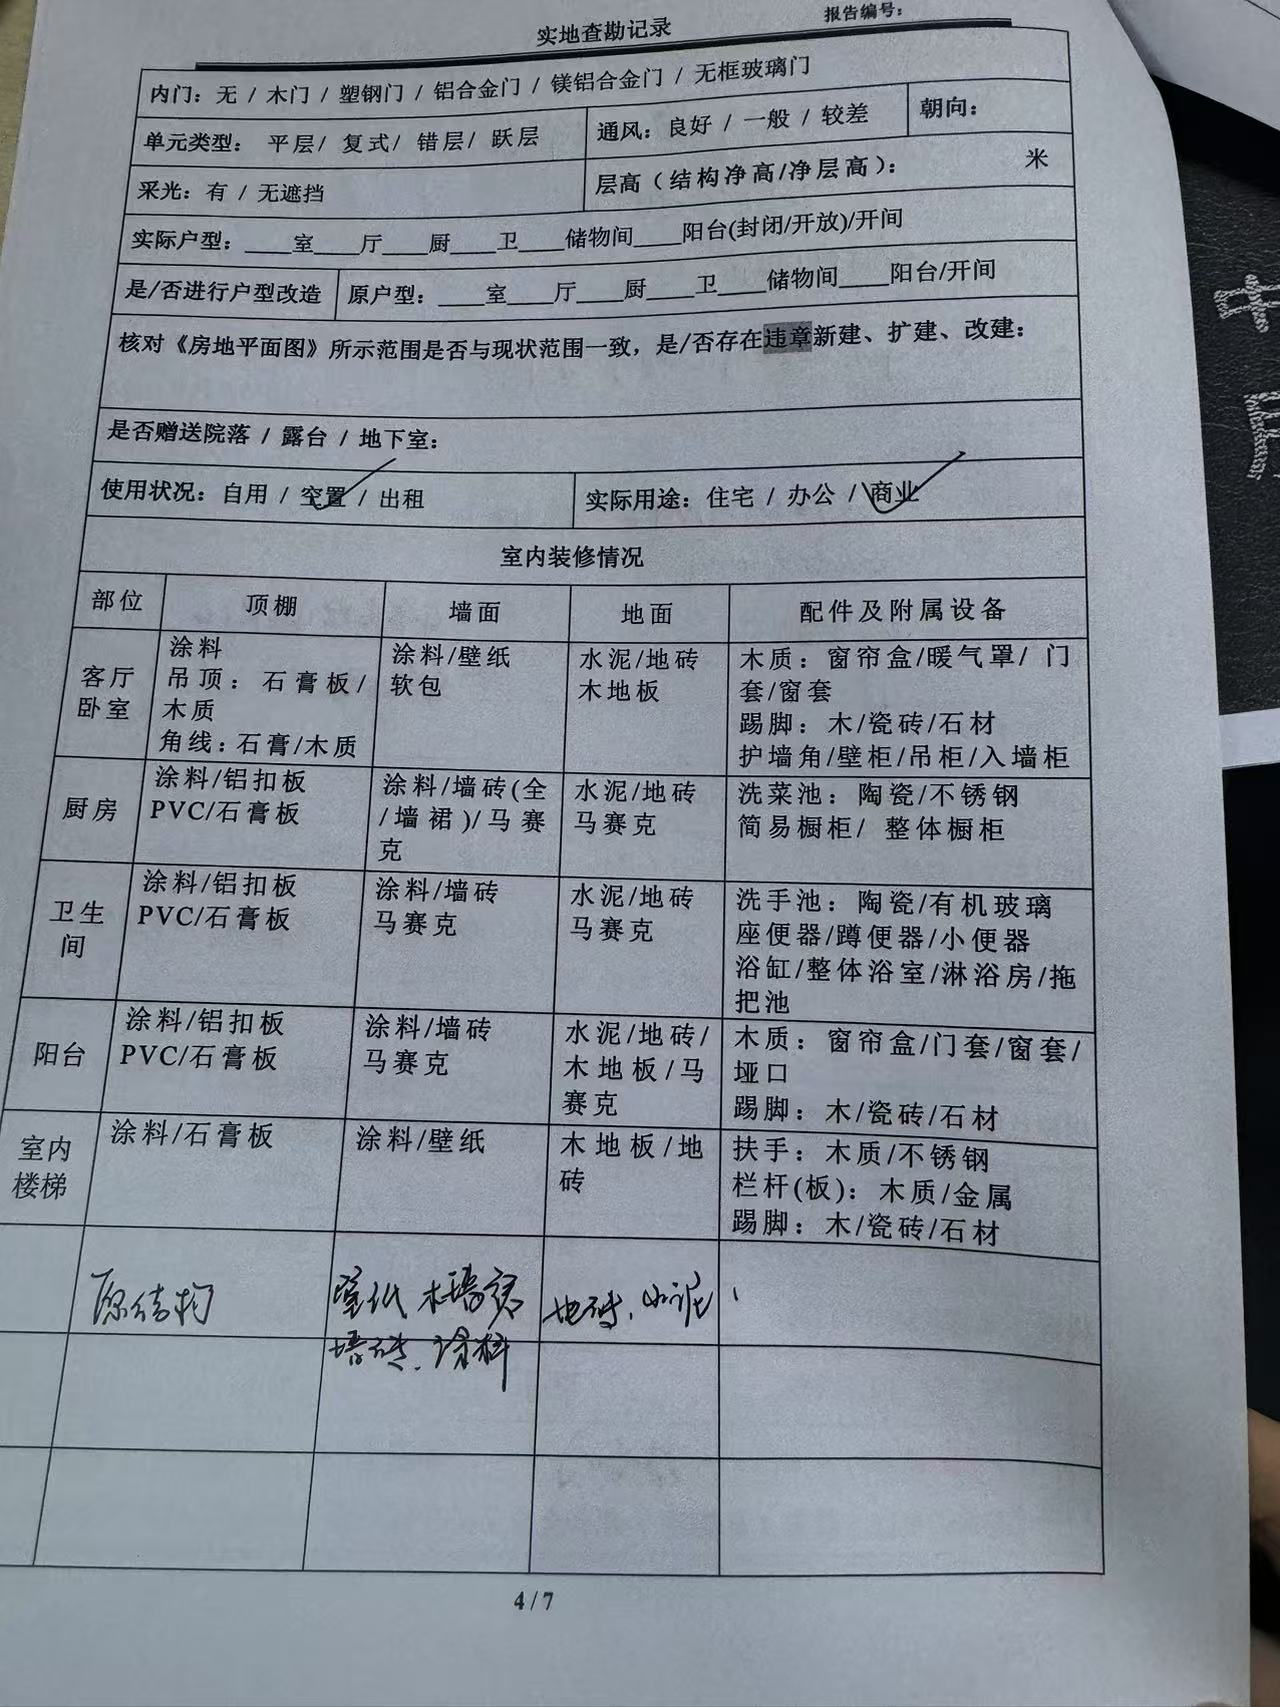 实地查勘记录
报告编号：
内门：无 / 木门 / 塑钢门 / 铝合金门 / 镁铝合金门 / 无框玻璃门
单元类型： 平层/ 复式/ 错层/ 跃层
通风：良好 / 一般 / 较差
朝向：
采光：有 / 无遮挡
层高（结构净高/净层高）： 米
实际户型：____室____厅____厨____卫____储物间____阳台(封闭/开放)/开间
是/否进行户型改造
原户型：____室____厅____厨____卫____储物间____阳台/开间
核对《房地平面图》所示范围是否与现状范围一致，是/否存在违章新建、扩建、改建：
是否赠送院落 / 露台 / 地下室：
使用状况：自用 / 空置 / 出租
实际用途：住宅 / 办公 / 商业
室内装修情况
部位
顶棚
墙面
地面
配件及附属设备
客厅
卧室
涂料
吊顶：石膏板/
木质
角线：石膏/木质
涂料/壁纸
软包
水泥/地砖
木地板
木质：窗帘盒/暖气罩/ 门
套/窗套
踢脚：木/瓷砖/石材
护墙角/壁柜/吊柜/入墙柜
厨房
涂料/铝扣板
PVC/石膏板
涂料/墙砖(全
/墙裙)/马赛
克
水泥/地砖
马赛克
洗菜池：陶瓷/不锈钢
简易橱柜/ 整体橱柜
卫生
间
涂料/铝扣板
PVC/石膏板
涂料/墙砖
马赛克
水泥/地砖
马赛克
洗手池：陶瓷/有机玻璃
座便器/蹲便器/小便器
浴缸/整体浴室/淋浴房/拖
把池
阳台
涂料/铝扣板
PVC/石膏板
涂料/墙砖
马赛克
水泥/地砖/
木地板/马
赛克
木质：窗帘盒/门套/窗套/
垭口
踢脚：木/瓷砖/石材
室内
楼梯
涂料/石膏板
涂料/壁纸
木地板/地
砖
扶手：木质/不锈钢
栏杆(板)：木质/金属
踢脚：木/瓷砖/石材
原结构
壁纸 木墙裙
墙砖、涂料
地砖、水泥
4 / 7